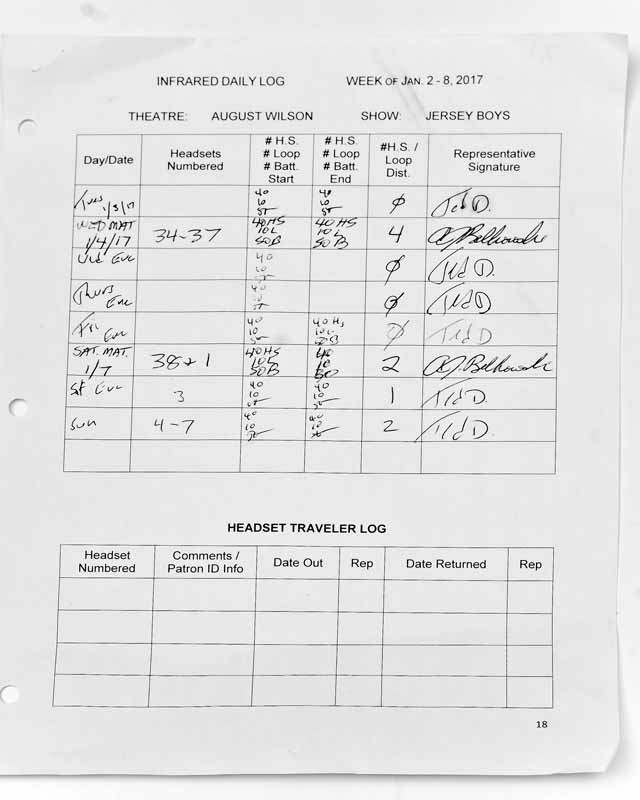 INFRARED DAILY LOG WEEK OF JAN. 2 - 8, 2017
THEATRE: AUGUST WILSON SHOW: JERSEY BOYS
Day/Date Headsets Numbered # H.S. # Loop # Batt. Start # H.S. # Loop # Batt. End #H.S. / Loop Dist. Representative Signature
Tues 1/3/17 40 40 Ø Ted D.
WED MAT 1/4/17 34-37 40HS 10L 50B 40HS 10L 50B 4
Wed Eve 40 10 Ø Ted D
Thurs Eve 40 10 Ø Ted D
Fri Eve 40 10 40 Hs 10L Ø Ted D
SAT. MAT. 1/7 38+1 40HS 10L 50B 40 10 50 2
Sat Eve 3 40 10 40 10 1 Ted D.
Sun 4-7 40 10 40 10 2 Ted D.
HEADSET TRAVELER LOG
Headset Numbered Comments / Patron ID Info Date Out Rep Date Returned Rep
18